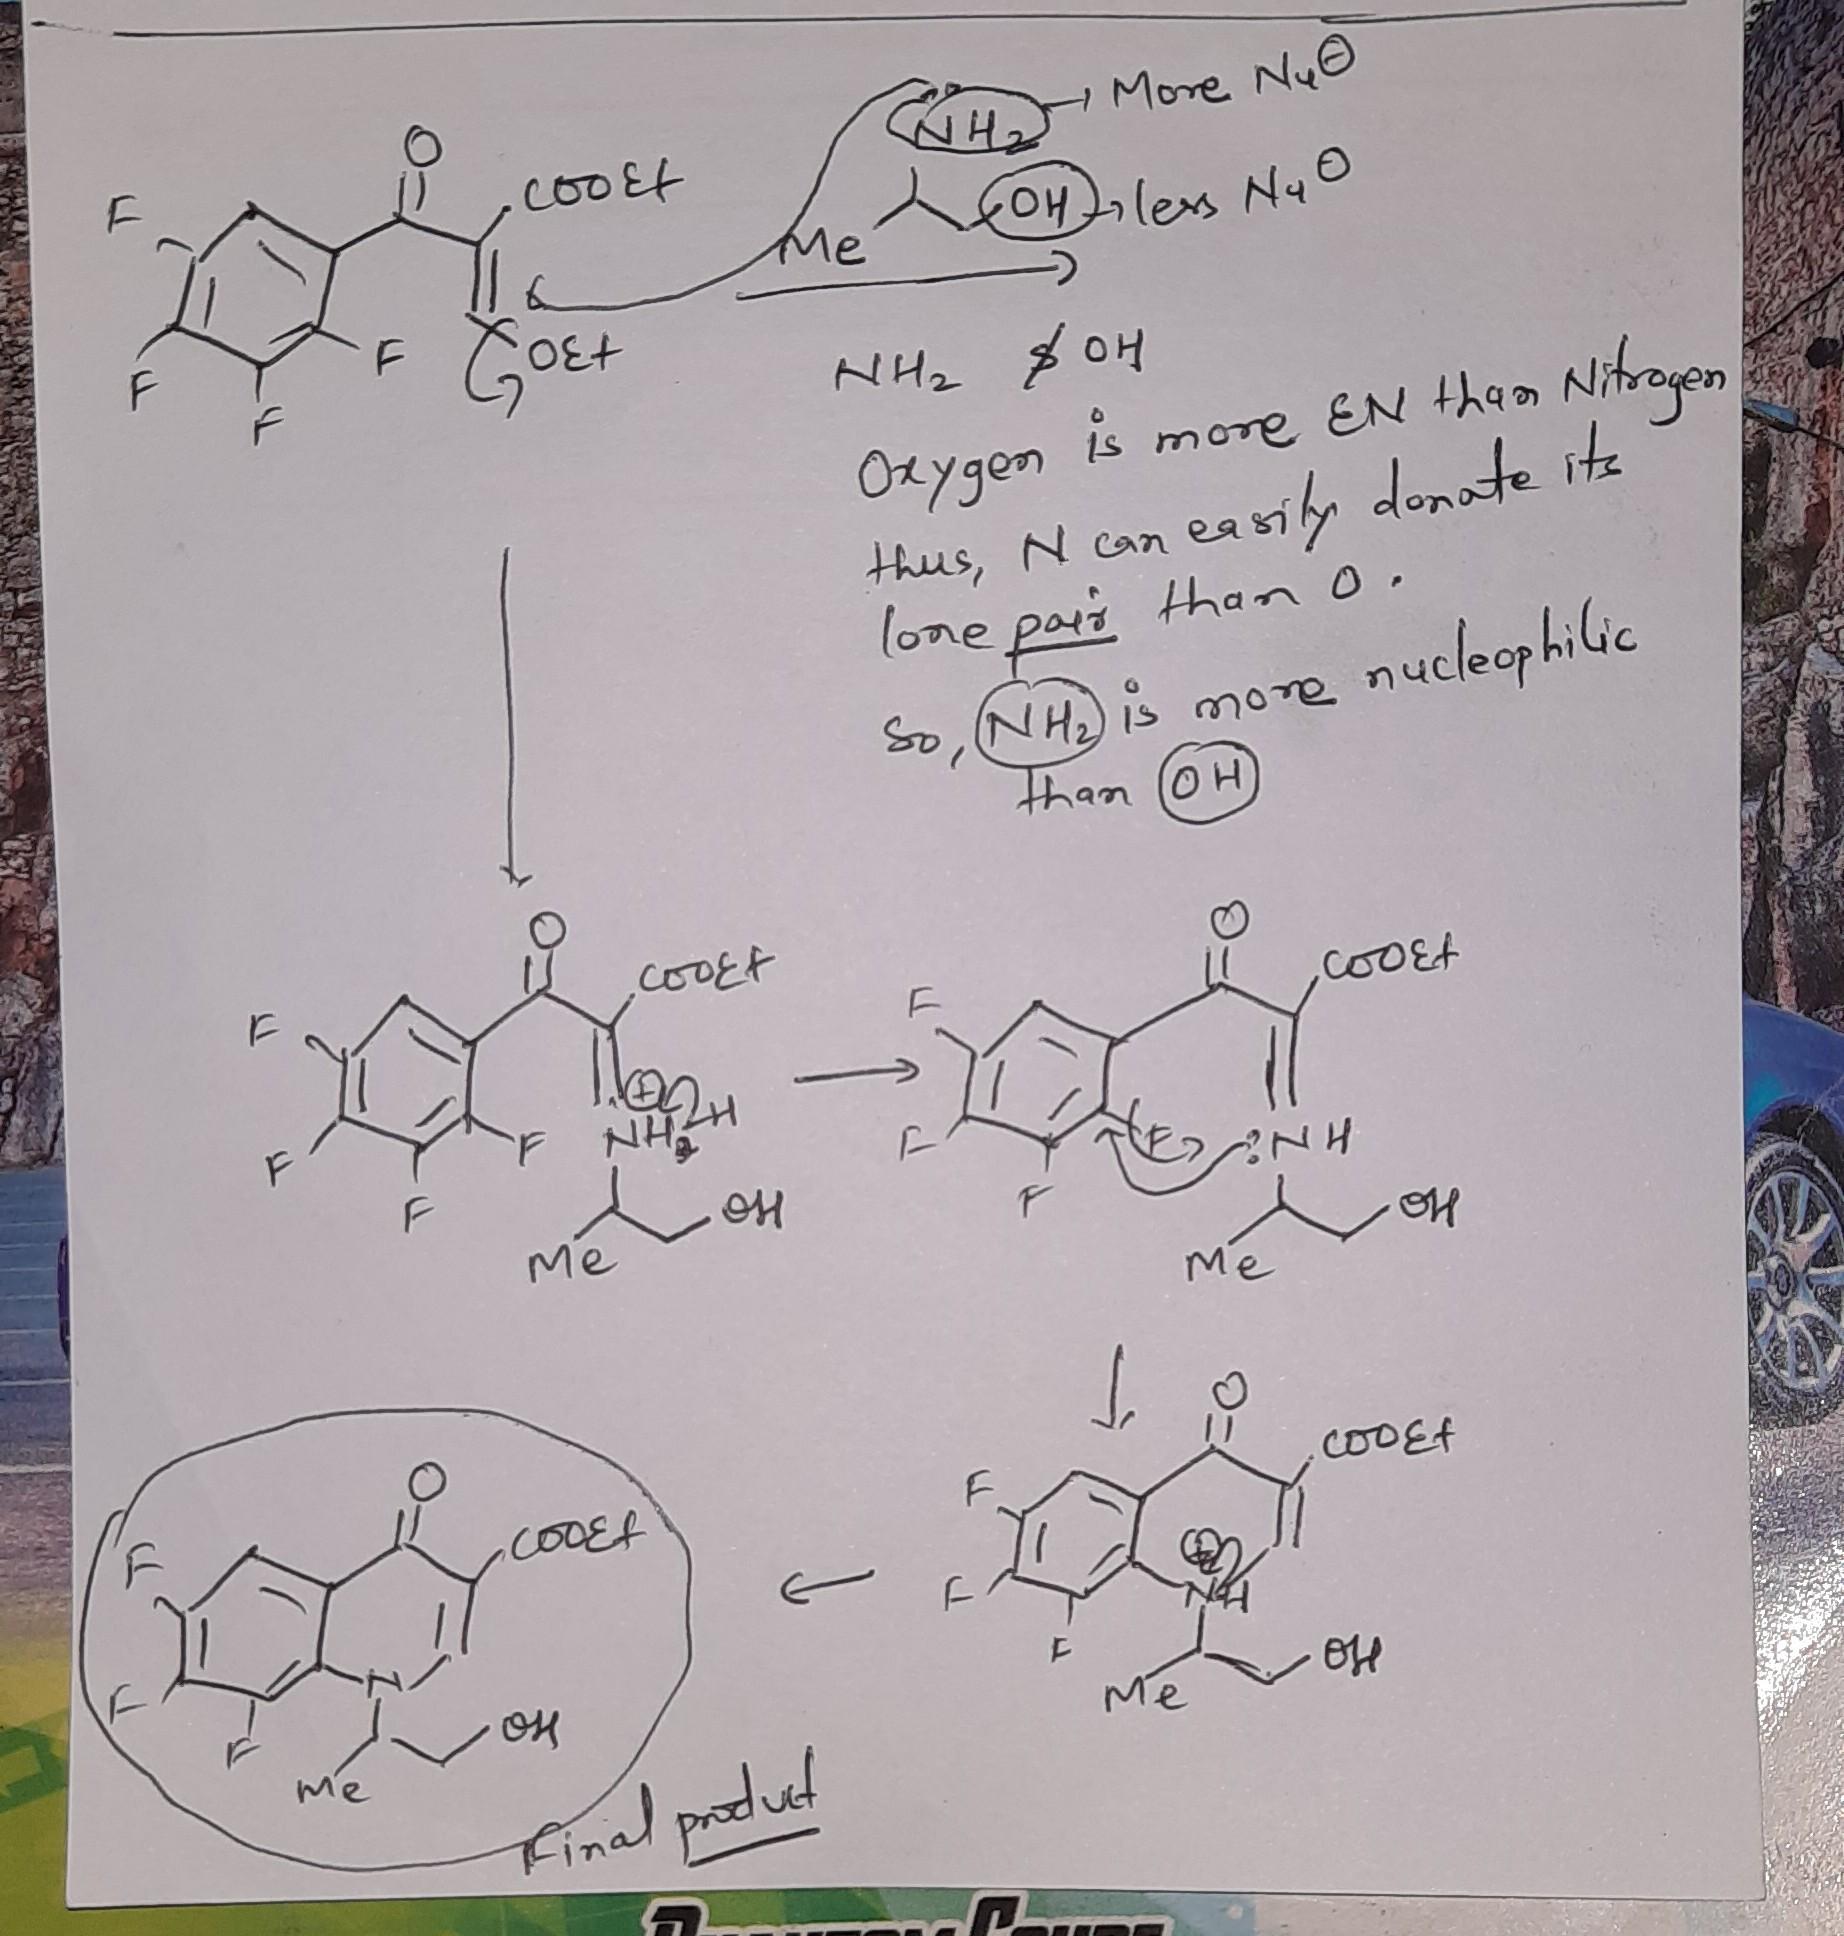 NH2 → More Nu⊖
OH → less Nu⊖
Me
O
COOEt
F
F
F
F
OEt
NH2 & OH
Oxygen is more EN than Nitrogen
thus, N can easily donate its
lone pair than O.
So, NH2 is more nucleophilic
than OH
O
COOEt
F
F
F
F
⊕
H
NH2
OH
Me
O
COOEt
F
F
F
F
:NH
OH
Me
O
COOEt
F
F
F
⊕
NH
OH
Me
O
COOEt
F
F
F
N
OH
Me
Final product